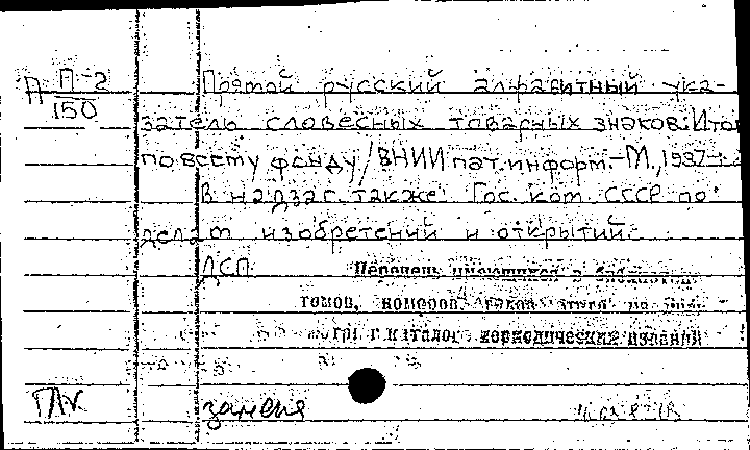 П П-2
150
Прямой русский алфавитный ука-
затель словесных товарных знаков: Итог
по всему фонду / ВНИИ пат. информ. – М., 1987–
В надзаг. также: Гос. ком. СССР по
делам изобретений и открытий.
ДСП
Перечень имеющихся в библиотеке
томов, номеров,
каталог периодических изданий
замена